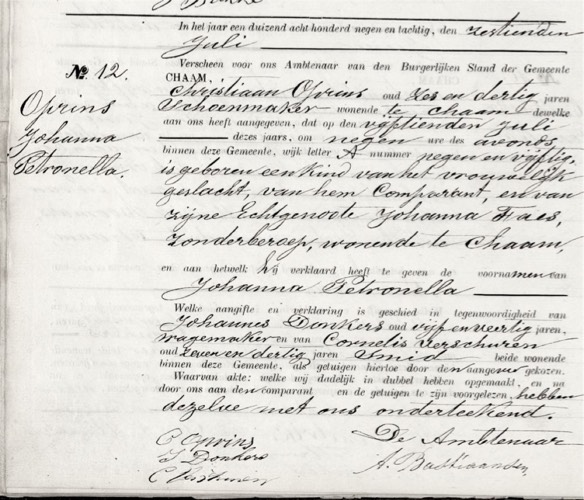 In het jaar een duizend acht honderd negen en tachtig, den zestienden
Juli
Verscheen voor ons Ambtenaar van den Burgerlijken Stand der Gemeente
CHAAM,
No. 12.
Oprins
Johanna
Petronella.
Christiaan Oprins oud zes en dertig jaren
Schoenmaker wonende te Chaam dewelke
aan ons heeft aangegeven, dat op den vijftienden Juli
dezes jaars, om negen ure des avonds
binnen deze Gemeente, wijk letter A nummer negen en vijftig,
is geboren een kind van het vrouwelijk
geslacht, van hem Comparant, en van
zijne Echtgenoote Johanna Faes,
zonder beroep, wonende te Chaam,
en aan hetwelk hij verklaard heeft te geven de voornamen van
Johanna Petronella
Welke aangifte en verklaring is geschied in tegenwoordigheid van
Johannes Donkers oud vijf en veertig jaren,
wagemaker en van Cornelis Verschuren
oud zeven en dertig jaren Smid beide wonende
binnen deze Gemeente, als getuigen hiertoe door den aangever gekozen.
Waarvan akte: welke wij dadelijk in dubbel hebben opgemaakt en na
door ons aan den comparant en de getuigen te zijn voorgelezen, hebben
dezelve met ons onderteekend.
C Oprins
J Donkers
De Ambtenaar
A. Bastiaansen